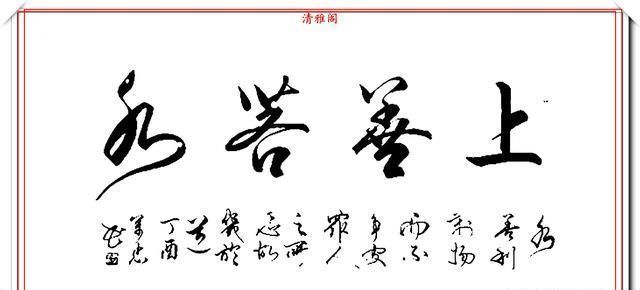 清雅阁
上善若水
水
善利
萬物
而不
争處
眾人
之所
惡故
幾於
道
丁酉